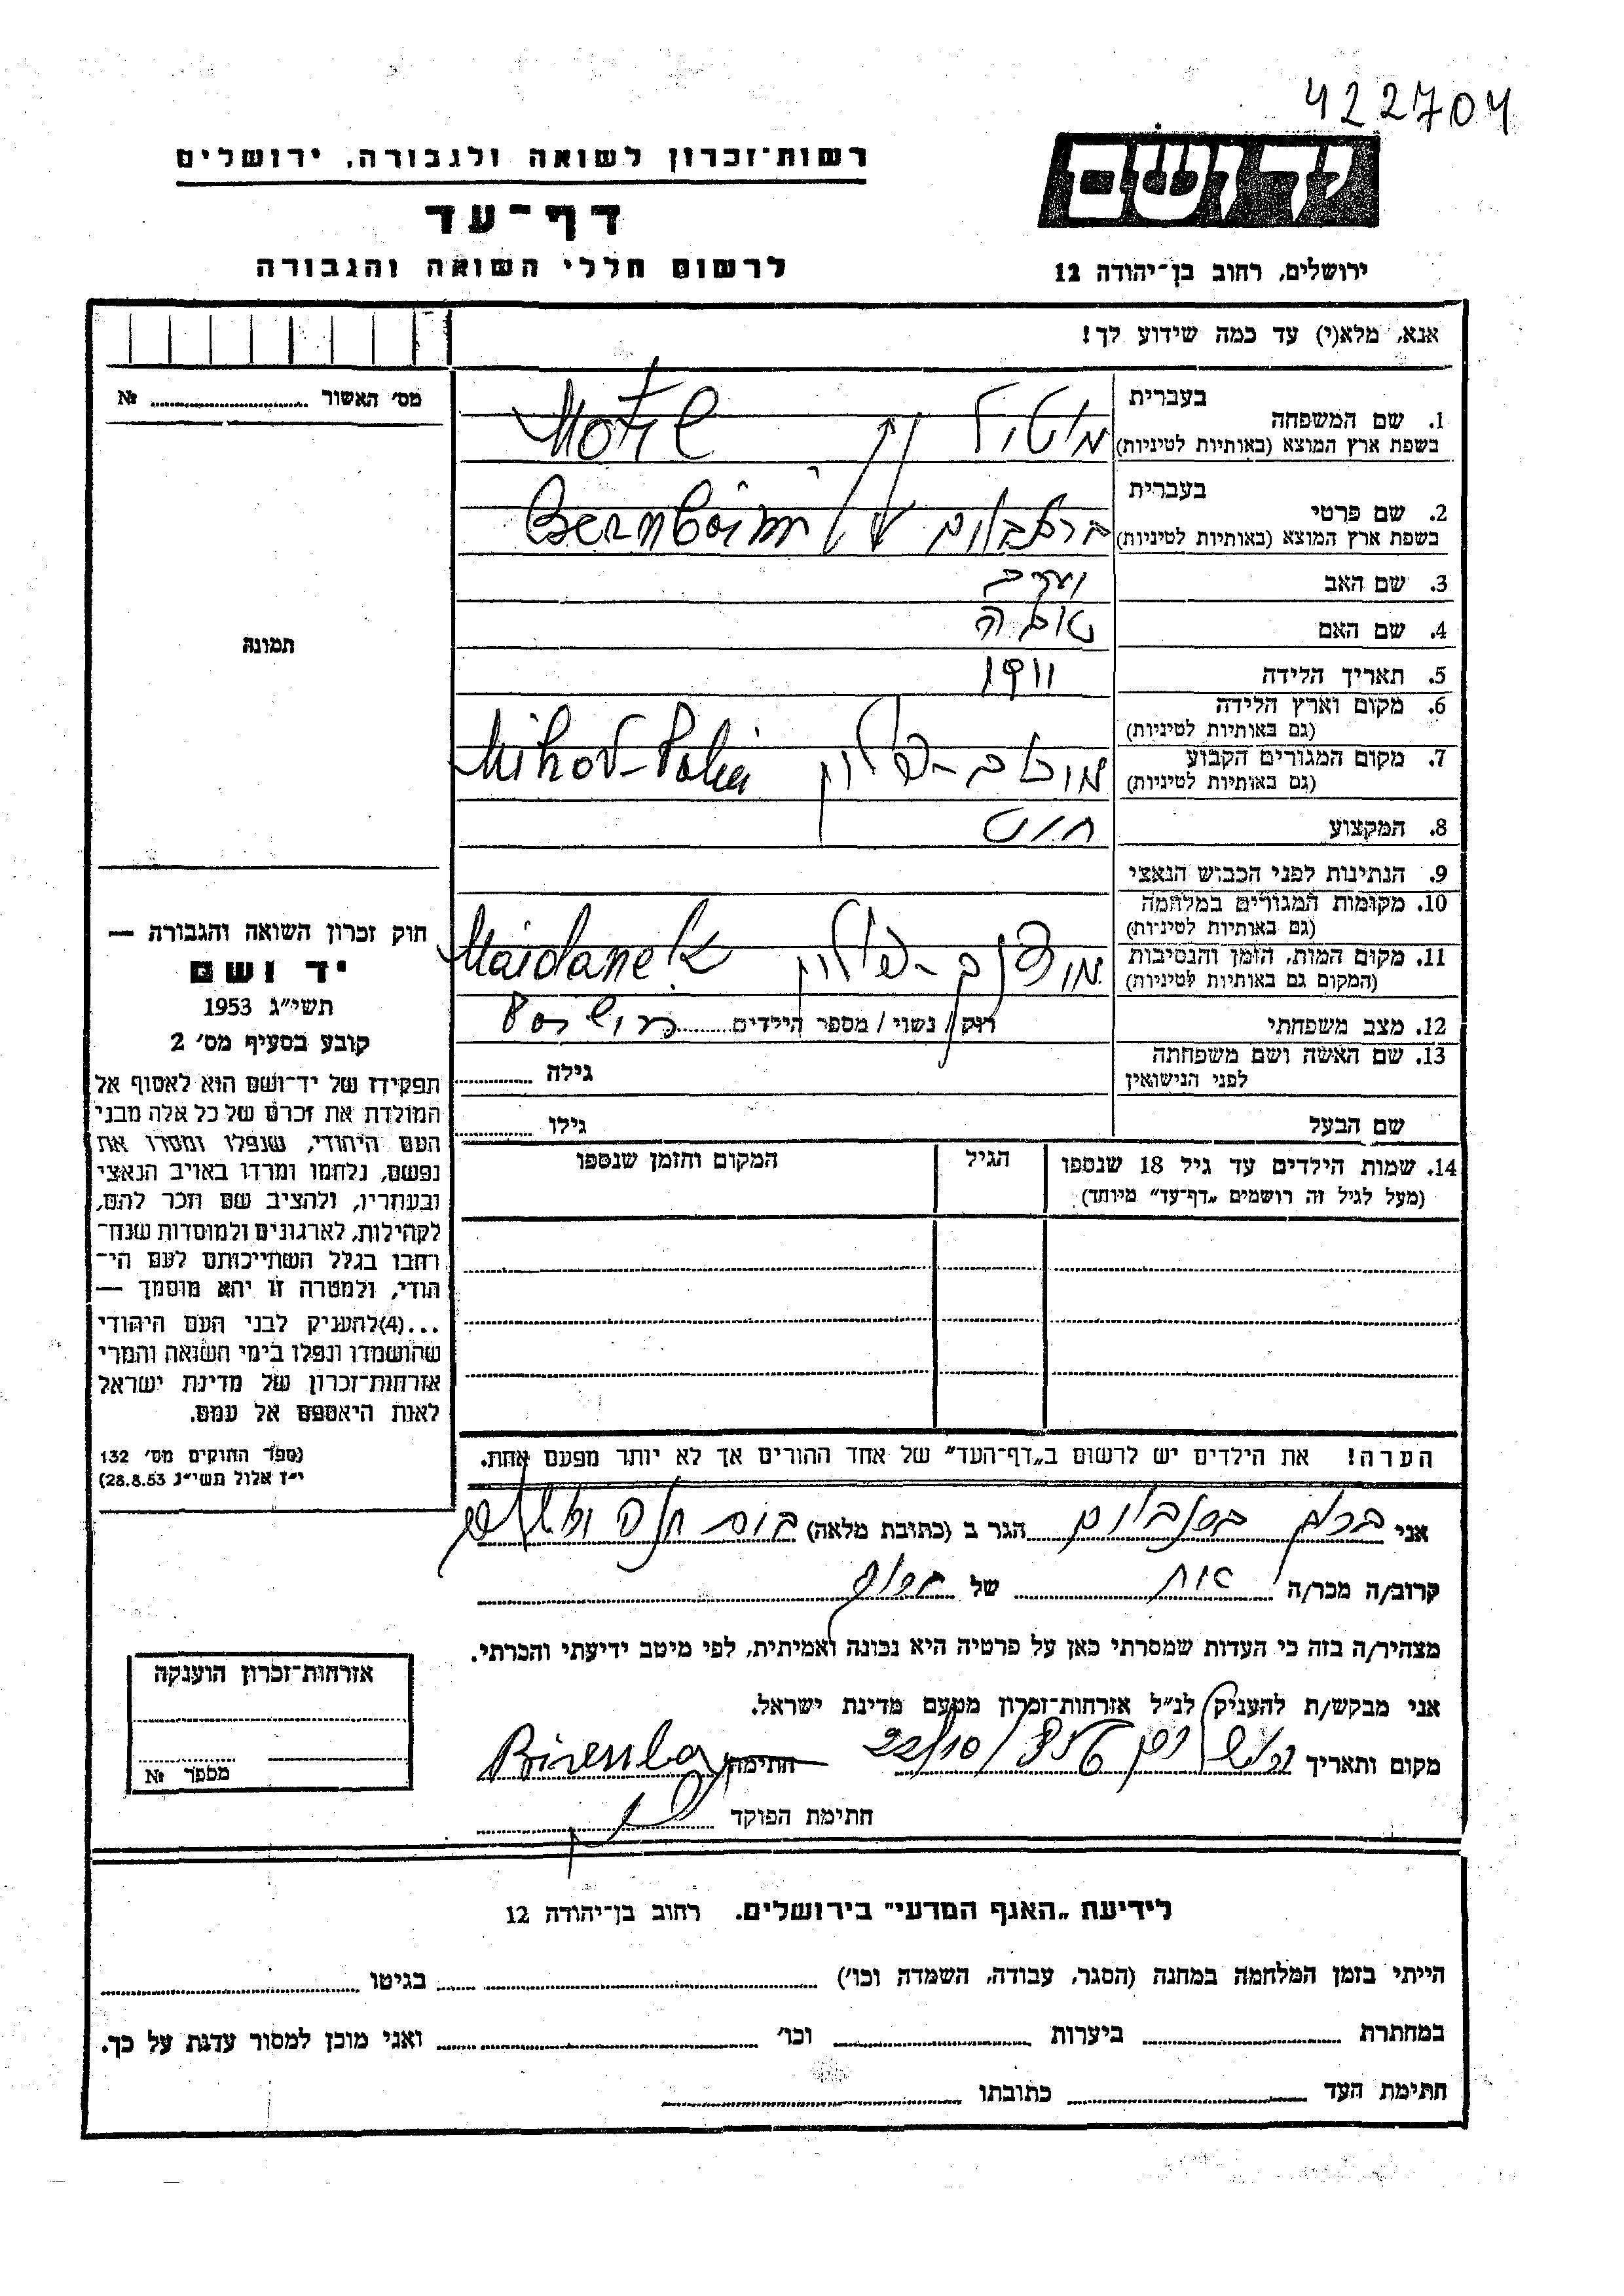 422704
יד ושם
רשות־זכרון לשואה ולגבורה, ירושלים
דף־עד
לרשום חללי השואה והגבורה
ירושלים, רחוב בן־יהודה 12
אנא, מלא(י) עד כמה שידוע לך!
מס' האשור № 
בעברית
1. שם המשפחה
בשפת ארץ המוצא (באותיות לטיניות)
מוטל Motel
בעברית
2. שם פרטי
בשפת ארץ המוצא (באותיות לטיניות)
ברנבוים
3. שם האב
4. שם האם
5. תאריך הלידה 1911
6. מקום וארץ הלידה
(גם באותיות לטיניות)
7. מקום המגורים הקבוע
(גם באותיות לטיניות)
פולין
8. המקצוע
9. הנתינות לפני הכבוש הנאצי
10. מקומות המגורים במלחמה
(גם באותיות לטיניות)
11. מקום המות, הזמן והנסיבות
(המקום גם באותיות לטיניות)
פולין Maidanek
12. מצב משפחתי רוק / נשוי / מספר הילדים
13. שם האשה ושם משפחתה
לפני הנישואין
גילה
שם הבעל גילו
14. שמות הילדים עד גיל 18 שנספו
(מעל לגיל זה רושמים „דף־עד” מיוחד)
הגיל
המקום והזמן שנספו
הערה! את הילדים יש לרשום ב„דף־העד” של אחד ההורים אך לא יותר מפעם אחת.
תמונה
חוק זכרון השואה והגבורה —
יד ושם
תשי״ג 1953
קובע בסעיף מס' 2
תפקידו של יד־ושם הוא לאסוף אל
המולדת את זכרם של כל אלה מבני
העם היהודי, שנפלו ומסרו את
נפשם, נלחמו ומרדו באויב הנאצי
ובעוזריו, ולהציב שם וזכר להם,
לקהילות, לארגונים ולמוסדות שנח־
רחבו בגלל השתייכותם לעם הי־
הודי, ולמטרה זו יהא מוסמך —
...(4)להעניק לבני העם היהודי
שהושמדו ונפלו בימי השואה והמרי
אזרחות־זכרון של מדינת ישראל
לאות היאספם אל עמם.
(ספר החוקים מס' 132
י״ז אלול תשי״ג 28.8.53)
אני הגר ב (כתובת מלאה)
קרוב/ה מכר/ה אח של
מצהיר/ה בזה כי העדות שמסרתי כאן על פרטיה היא נכונה ואמיתית, לפי מיטב ידיעתי והכרתי.
אני מבקש/ת להעניק לנ״ל אזרחות־זכרון מטעם מדינת ישראל.
מקום ותאריך 22/10 חתימה
חתימת הפוקד
אזרחות־זכרון הוענקה
מספר №
לידיעת „האגף המדעי” בירושלים. רחוב בן־יהודה 12
הייתי בזמן המלחמה במחנה (הסגר, עבודה, השמדה וכו') בגיטו
במחתרת ביערות וכו' ואני מוכן למסור עדות על כך.
חתימת העד כתובתו